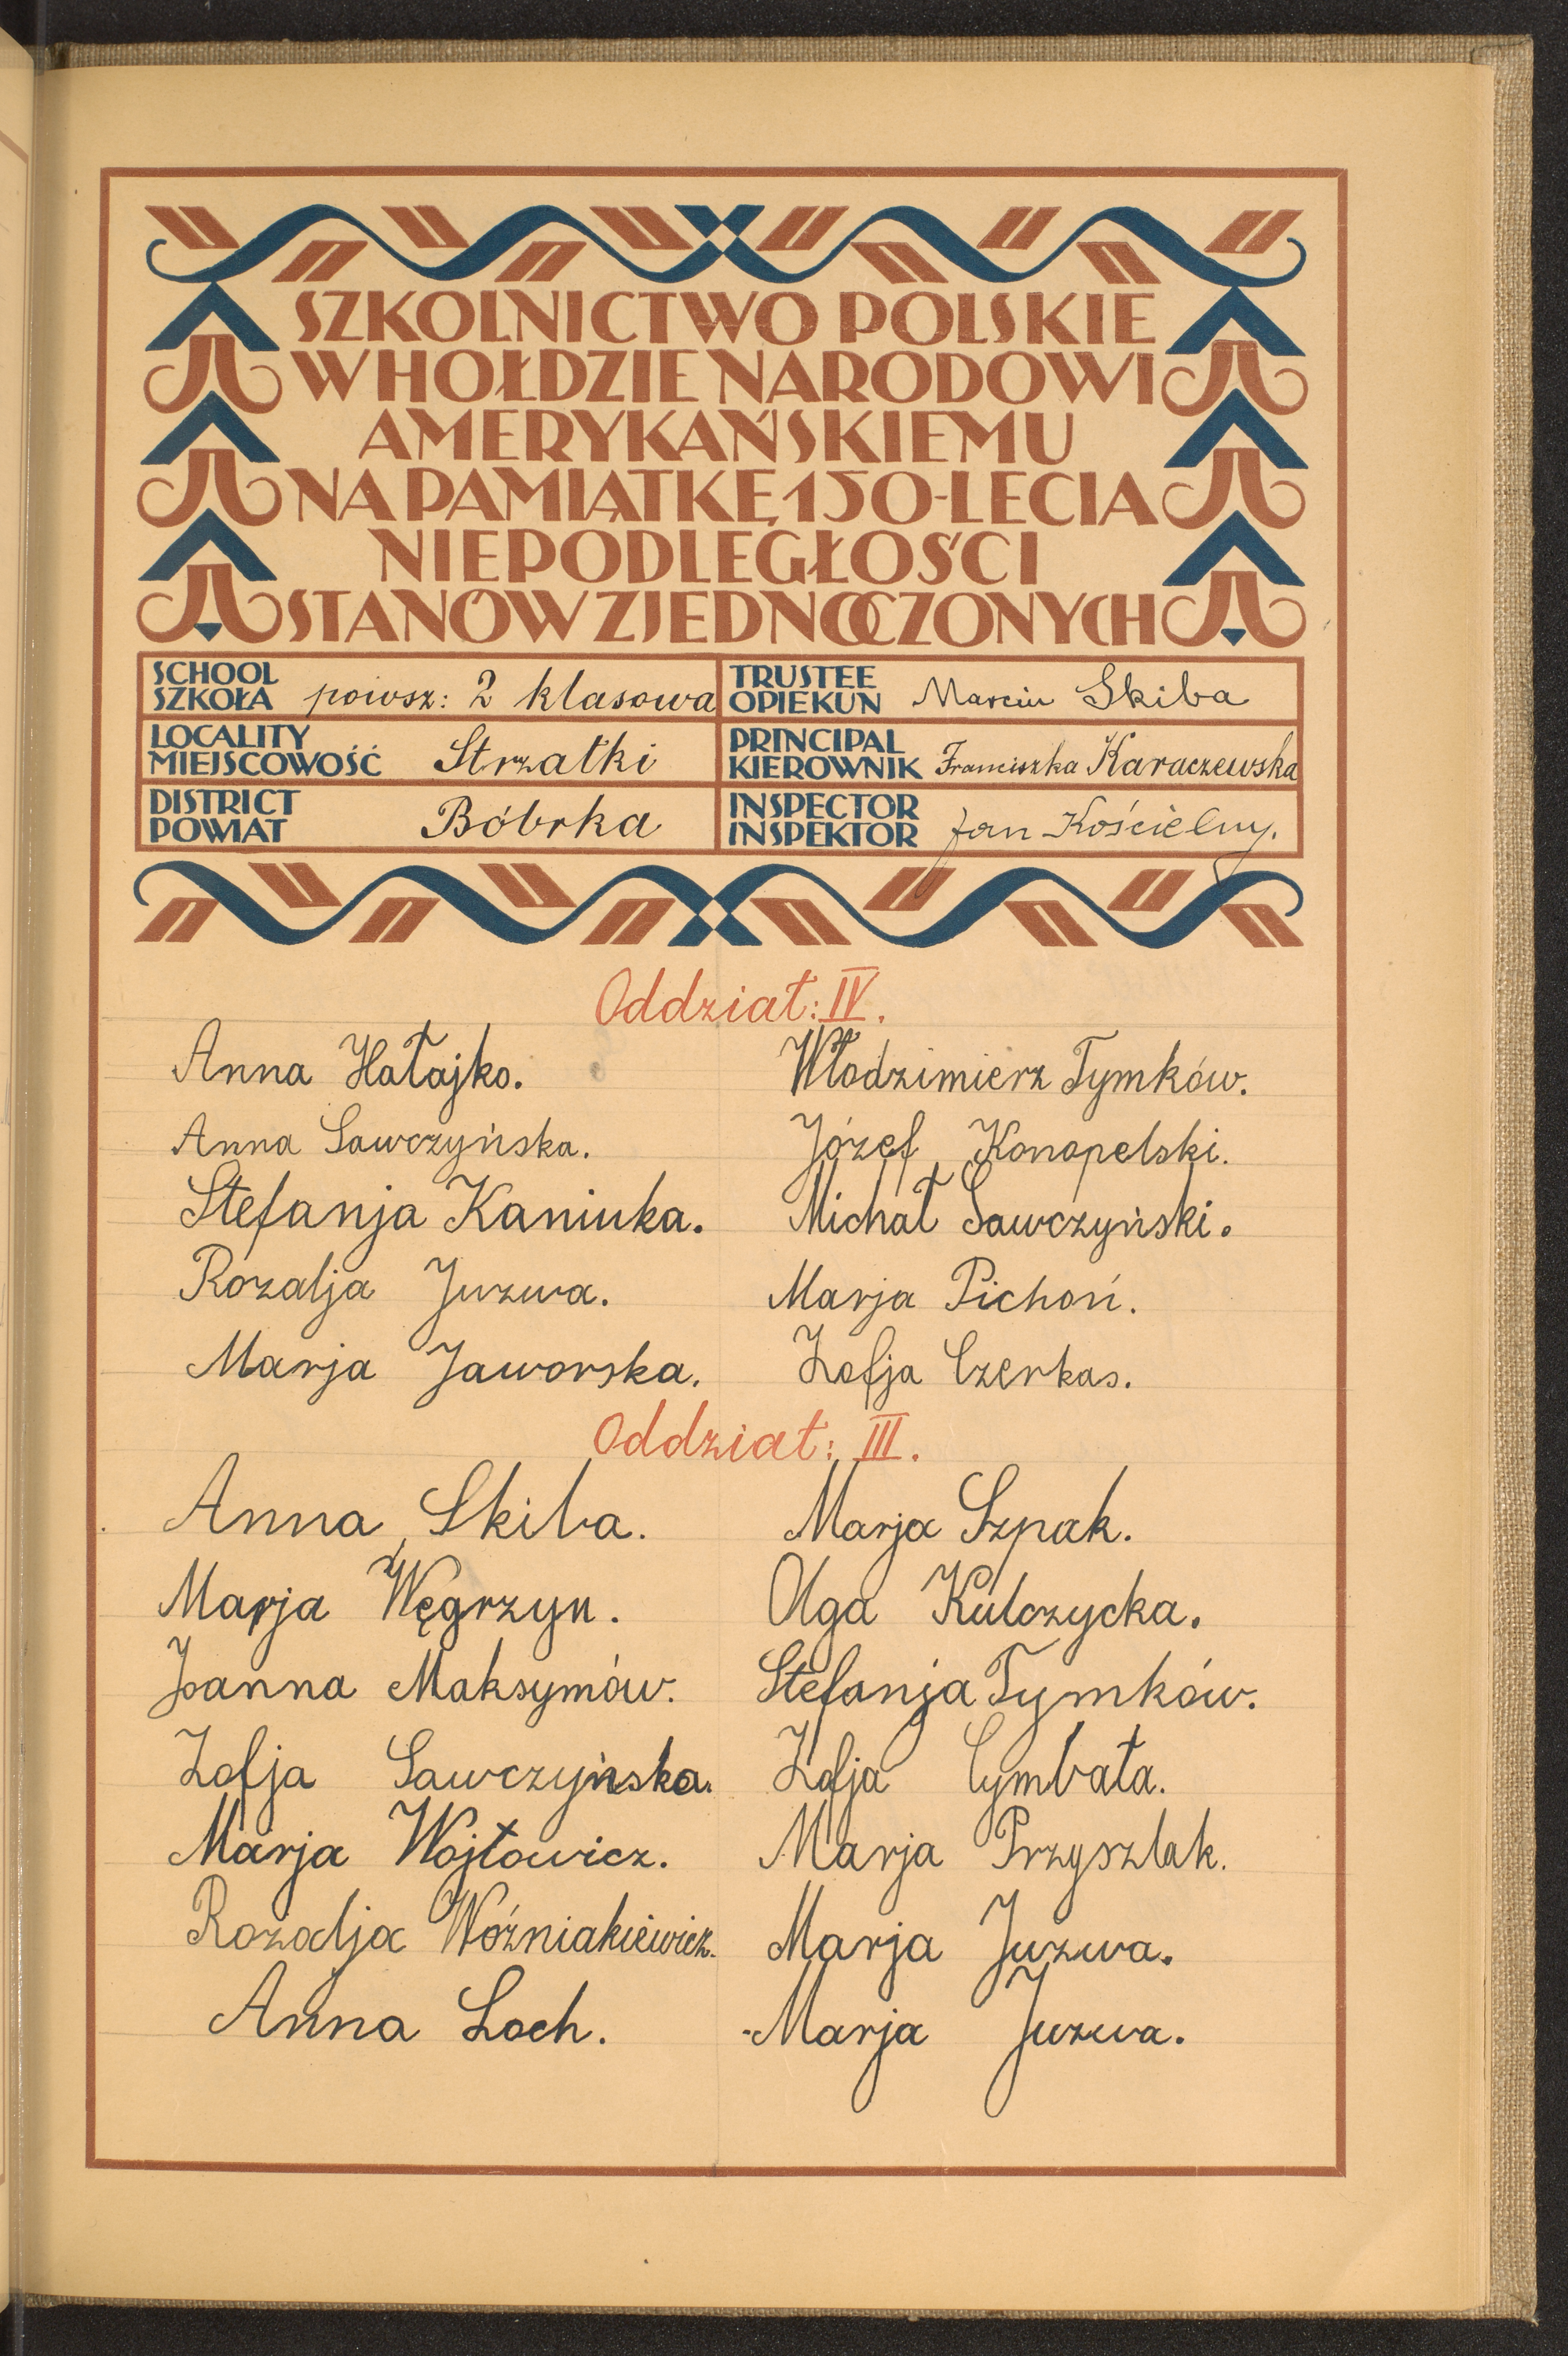 SZKOLNICTWO POLSKIE
W HOŁDZIE NARODOWI
AMERYKAŃSKIEMU
NA PAMIĄTKĘ 150-LECIA
NIEPODLEGŁOŚCI
STANÓW ZJEDNOCZONYCH
SCHOOL
SZKOŁA powsz: 2 klasowa
TRUSTEE
OPIEKUN Marcin Skiba
LOCALITY
MIEJSCOWOŚĆ Strzałki
PRINCIPAL
KIEROWNIK Franciszka Karaczewska
DISTRICT
POWIAT Bóbrka
INSPECTOR
INSPEKTOR Jan Kościelny.
Oddział: IV.
Anna Hałajko.
Anna Sawczyńska.
Stefanja Kaniuka.
Rozalja Juzwa.
Marja Jaworska.
Włodzimierz Tymków.
Józef Konopelski.
Michał Sawczyński.
Marja Pichoń.
Zofja Czerkas.
Oddział: III.
Anna Skiba.
Marja Węgrzyn.
Joanna Maksymów.
Zofja Sawczyńska.
Marja Wojtowicz.
Rozalja Woźniakiewicz.
Anna Loch.
Marja Szpak.
Olga Kulczycka.
Stefanja Tymków.
Zofja Cymbała.
Marja Przyszlak.
Marja Juzwa.
Marja Juzwa.